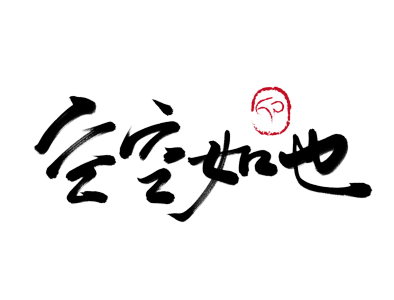 空空如也